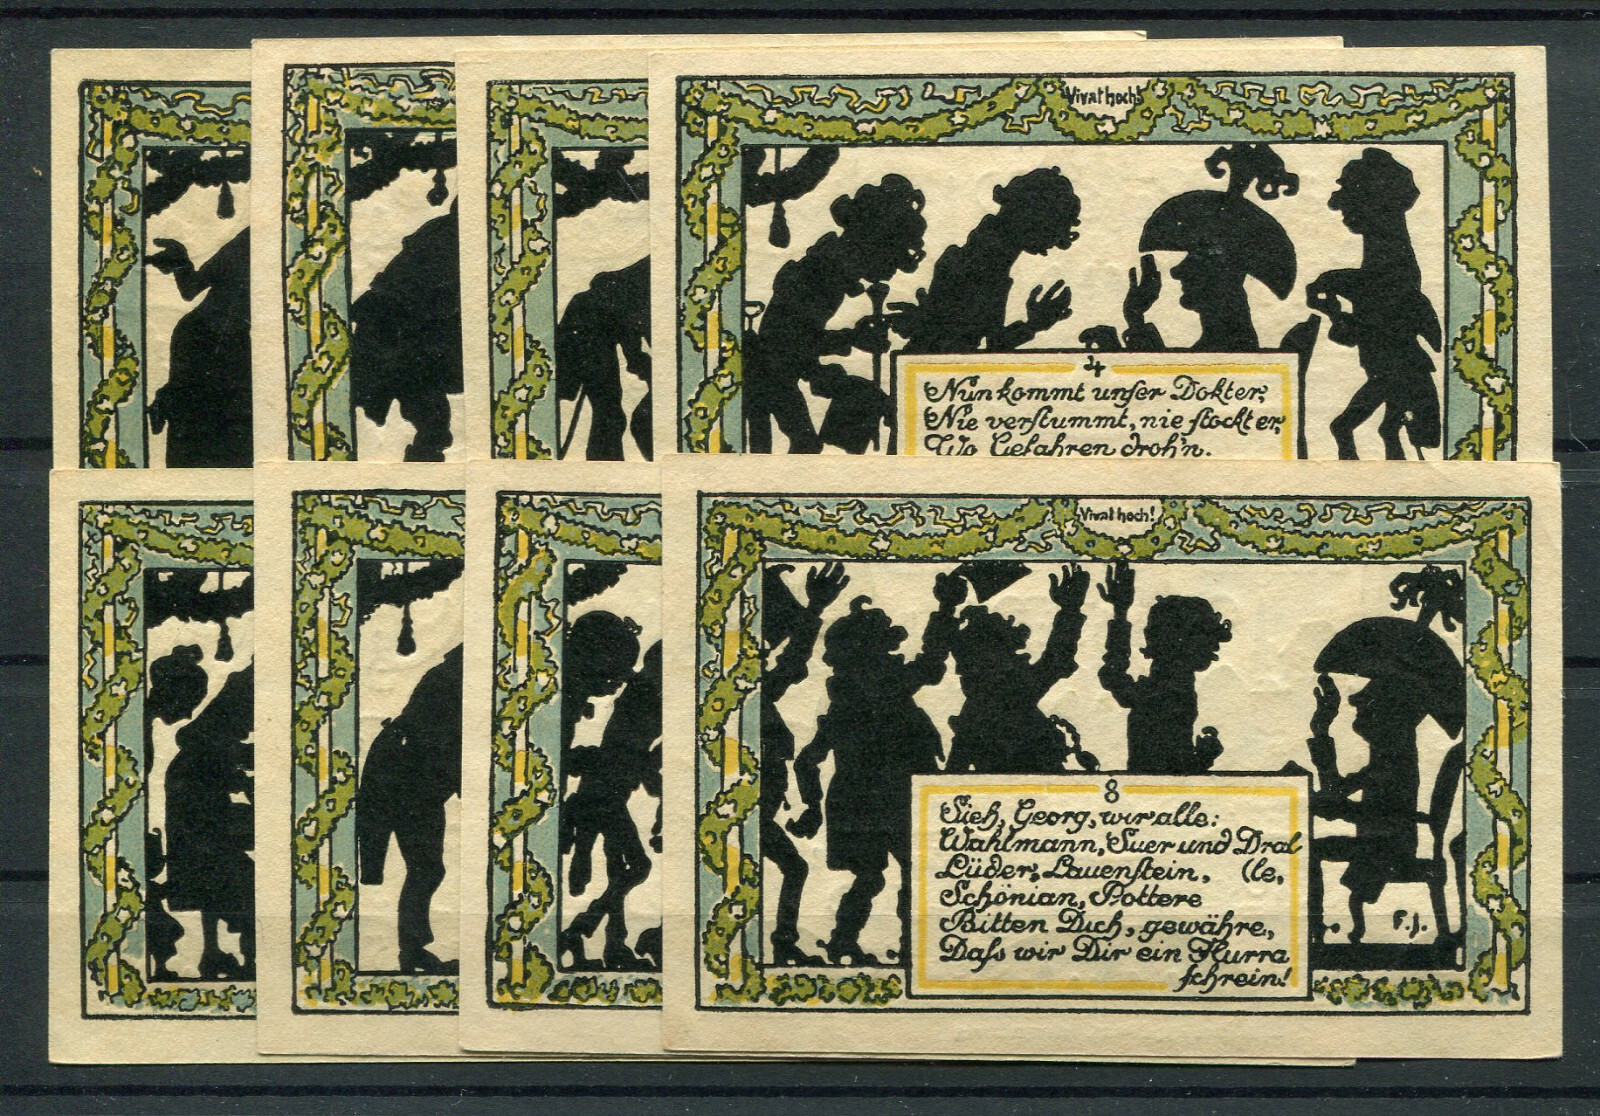 Vivat hoch!
4
Nun kommt unser Dokter,
Nie verstummt, nie stockt er,
Wo Gefahren droh'n.
Vivat hoch!
8
Sieh, Georg, wir alle:
Wahlmann, Suer und Dral
Lüder, Lauenstein, (le,
Schönian, Pottere
Bitten Dich, gewähre,
Daß wir Dir ein Hurra
schrein!
F.J.